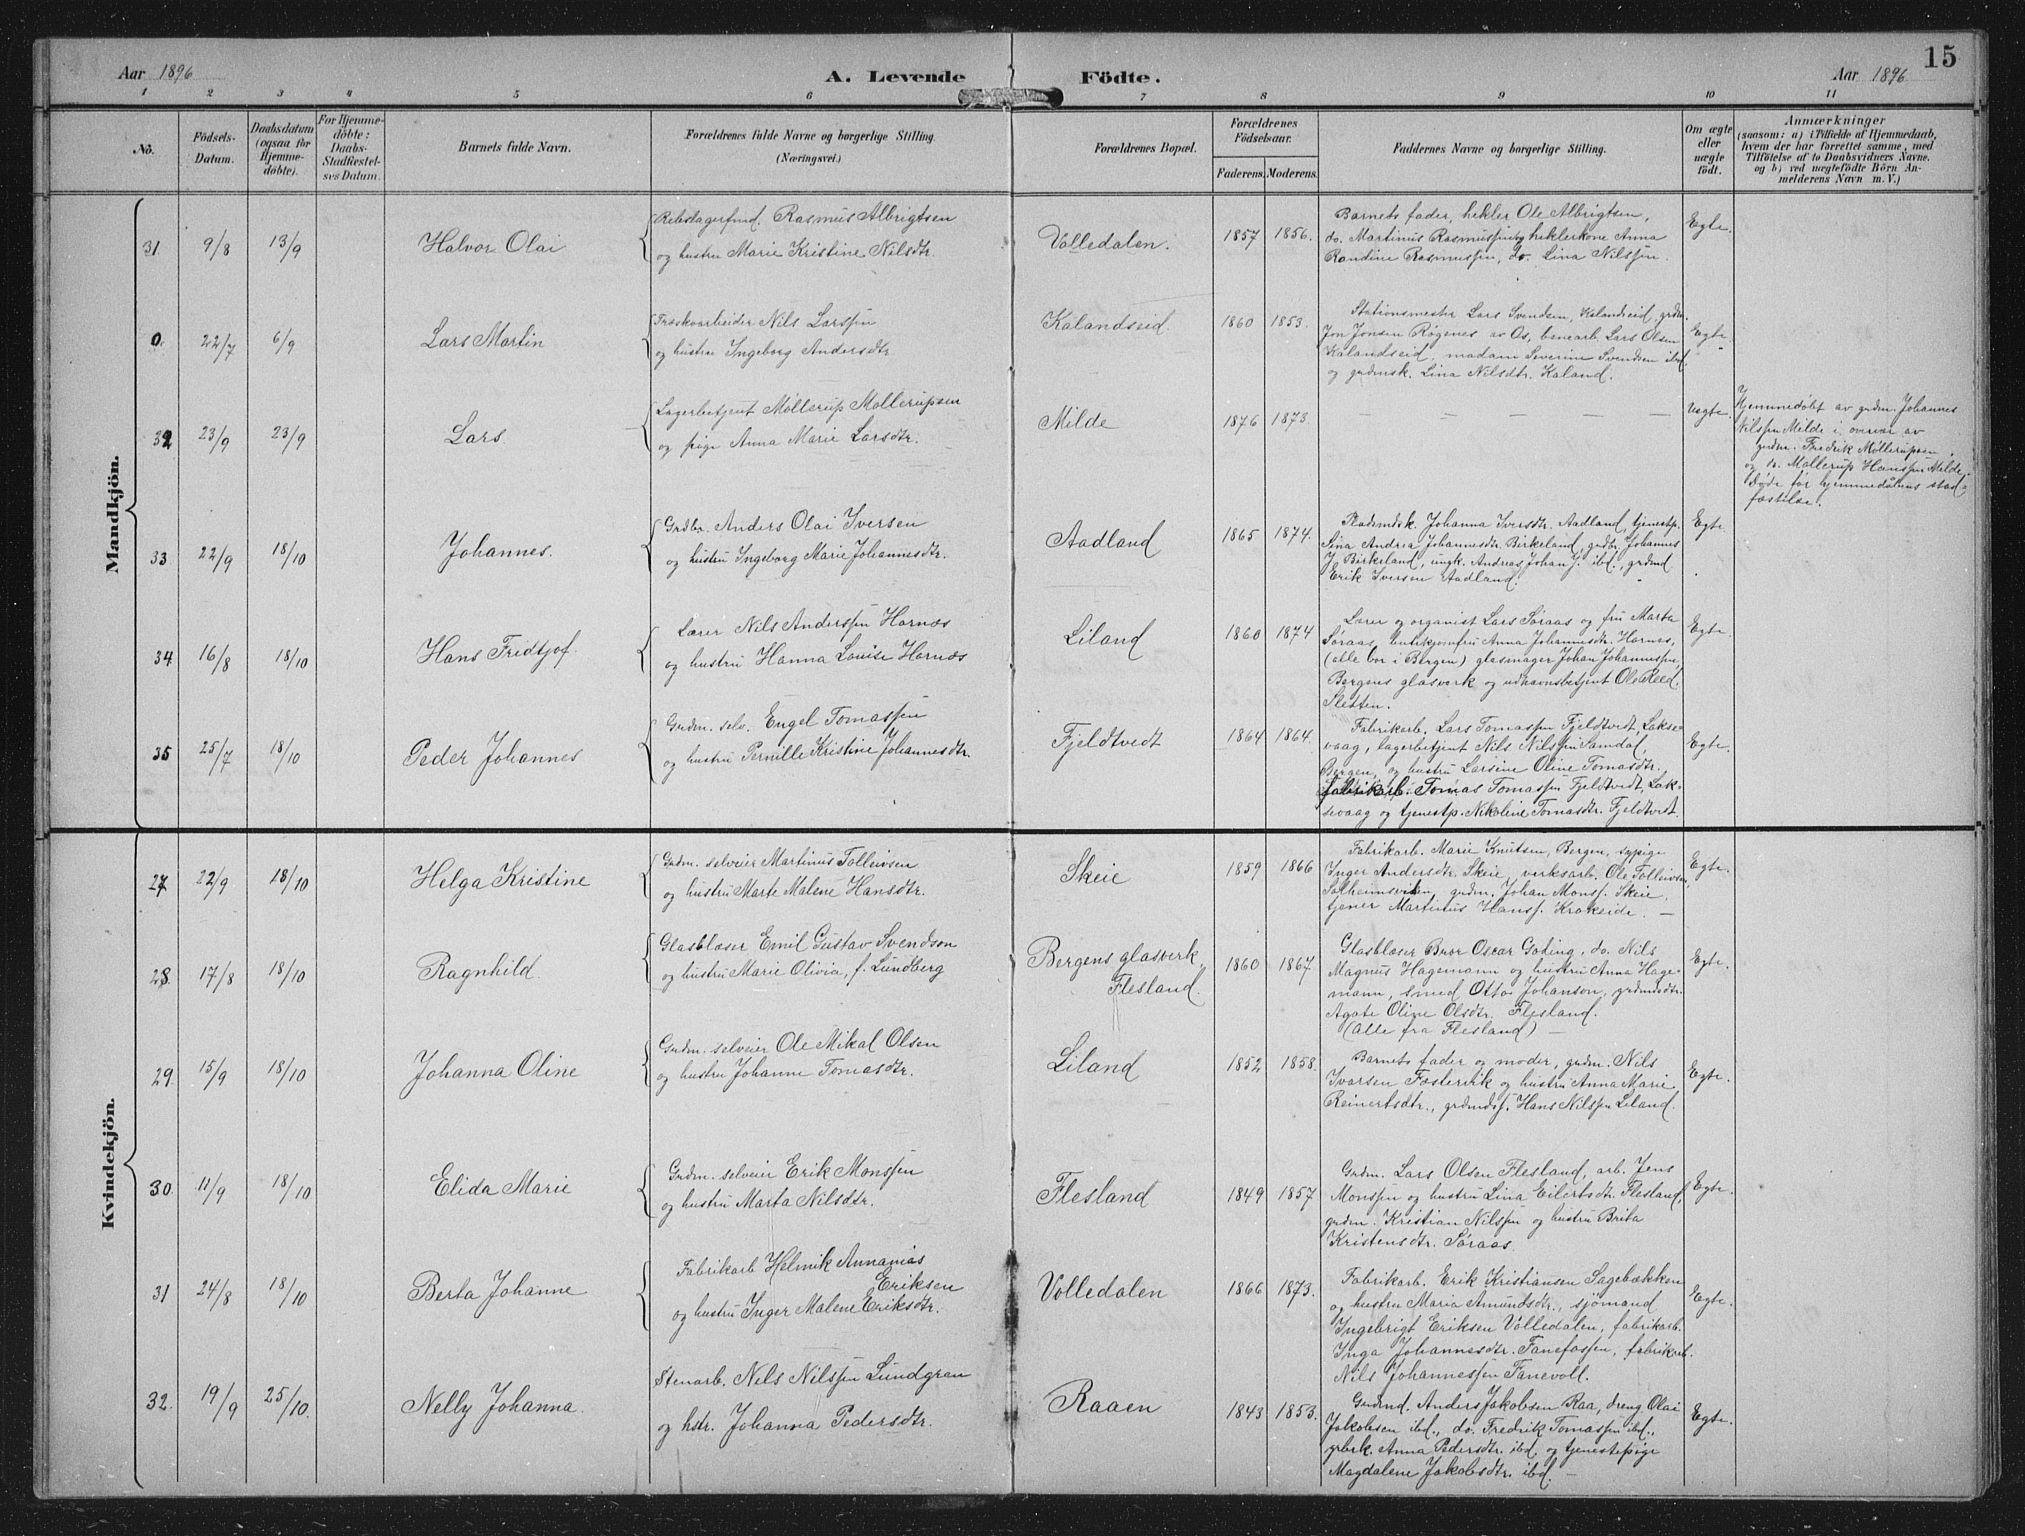 15
Aar 1896 A. Levende Födte. Aar 1896
1 2 3 4 5 6 7 8 9 10 11
No.
Födsels-
Datum.
Daabsdatum
(ogsaa for
Hjemme-
döbte).
For Hjemme-
döbte:
Daabs-
Stadfæstel-
ses Datum.
Barnets fulde Navn.
Forældrenes fulde Navne og borgerlige Stilling.
(Næringsvei.)
Forældrenes Bopæl.
Forældrenes
Födselsaar.
Faderens. Moderens.
Faddernes Navne og borgerlige Stilling.
Om ægte
eller
uægte
födt.
Anmærkninger
(saasom: a) i Tilfælde af Hjemmedaab,
hvem der har forrettet samme, med
Tilföielse af to Daabsvidners Navne.
og b) ved uægtefödte Börn An-
melderens Navn m. V.)
Mandkjön.
31 9/8 13/9 Halvor Olai
Rebslagerfmd. Rasmus Albrigtsen
og hustru Marie Kristine Nilsdtr.
Volledalen. 1857 1856.
Barnets fader, hekler Ole Albrigtsen,
do. Martinus Rasmussen, heklerkone Anna
Randine Rasmussen, do. Lina Nilssen.
Egte.
0. 22/7 6/9 Lars Martin
Træskoarbeider Nils Larssen
og hustru Ingeborg Andersdtr
Kalandseid. 1860 1853.
Stationsmester Lars Svendsen, Kalandseid, grdm.
Jon Jonsen Røgenes av Os, benearb. Lars Olsen
Kalandseid, madam Severine Svendsen ibd.
og grdmsk. Lina Nilsdtr. Kaland.
Egte
32 23/9 23/9 Lars.
Lagerbetjent Møllerup Møllerupsen
og pige Anna Marie Larsdtr.
Milde 1876 1873
— — — — —
Uegte.
Hjemmedøbt av grdm. Johannes
Nilssen Milde i overvær av
grdm. Fredrik Møllerupsen
og do. Møllerup Hanssen Milde.
Døde før hjemmedåbens stad-
fæstelse.
33 22/9 18/10 Johannes.
Grdbr. Anders Olai Iversen
og hustru Ingeborg Marie Johannesdtr.
Aadland 1865 1874.
Pladsmdsk. Johanna Iversdtr. Aadland, tjenestp.
Sina Andrea Johannesdtr. Birkeland, grdbr. Johannes
J. Birkeland, ungk. Andreas Johan J. ibd., grdmd
Erik Iversen Aadland.
Egte
34 16/8 18/10 Hans Fridtjof.
Lærer Nils Anderssen Hornæs
og hustru Hanna Louise Hornæs
Liland 1860 1874
Lærer og organist Lars Søraas og fru Marta
Søraas, butikjomfru Anna Johannesdtr. Hornæs,
(alle bor i Bergen) glasmager Johan Johannessen,
Bergens glasverk og udhavnsbetjent Ole Reed.
Sletten.
Egte.
35 25/7 18/10 Peder Johannes
Grdm. selv. Engel Tomassen
og hustru Pernille Kristine Johannesdtr.
Fjeldtvedt 1864 1864.
Fabrikarb. Lars Tomassen Fjeldtvedt, Lakse-
vaag, lagerbetjent Nils Nilssen Samdal,
Bergen, og hustru Larsine Oline Tomasdtr.,
fabrikarb. Tomas Tomassen Fjeldtvedt, Lak-
sevaag og tjenestp. Nikoline Tomasdtr. Fjeldtvedt.
Egte.
Kvindekjön.
27 22/9 18/10 Helga Kristine
Grdm. selveier Martinus Tolleivsen
og hustru Marte Malene Hansdtr.
Skeie 1859 1866
Fabrikarb. Marie Knutsen, Bergen, sypige
Inger Andersdtr. Skeie, verksarb. Ole Tolleivsen,
Solheimsviken, grdm. Johan Monss. Skeie,
tjener Martinus Hanss. Krokeide. —
Egte.
28. 17/8 18/10 Ragnhild.
Glasblæser Emil Gustav Svendson
og hustru Marie Olivia, f. Lundberg
Bergens glasverk,
Flesland. 1860 1867.
Glasblæser Bror Oscar Goting, do. Nils
Magnus Hagemann og hustru Anna Hage-
mann, smed Otto Johanson, grdmdsdtr.
Agate Oline Olsdtr. Flesland.
(Alle fra Flesland) —
Egte.
29. 15/9 18/10 Johanna Oline
Grdm. selveier Ole Mikal Olsen
og hustru Johanne Tomasdtr.
Liland 1852 1858.
Barnets fader og moder, grdm. Nils
Ivarsen Fæstervik og hustru Anna Marie
Reinertsdtr., grdmdss. Hans Nilssen Liland.
Egte.
30. 11/9 18/10 Elida Marie
Grdm. selveier Erik Monssen
og hustru Marta Nilsdtr.
Flesland 1849 1857.
Grdm. Lars Olsen Flesland, arb. Jens
Monssen og hustru Lina Eilertsdtr. Flesland,
grdm. Kristian Nilssen og hustru Brita
Kristensdtr. Søraas.
Egte.
31 24/8 18/10 Berta Johanne
Fabrikarb Helmik Annanias
Eriksen
og hustru Inger Malene Eriksdtr.
Volledalen 1866 1873.
Fabrikarb. Erik Kristiansen Sagebækken
og hustru Maria Amundsdtr., sjømand
Ingebrigt Eriksen Volledalen, fabrikarb.
Inga Johannesdtr. Tanefossen, fabrikarb.
Nils Johannessen Fanevoll.
Egte.
32. 19/9 25/10. Nelly Johanna.
Stenarb. Nels Nilssen Lundgran
og hstr. Johanna Pedersdtr.
Raaen 1843 1853.
Grdmd. Anders Jakobsen Raa, dreng Olai
Jakobsen ibd., do. Fredrik Tomassen ibd.,
grbrk. Anna Pedersdtr. ibd. og tjenestepige
Magdalene Jakobsdtr. ibd. —
Egte.